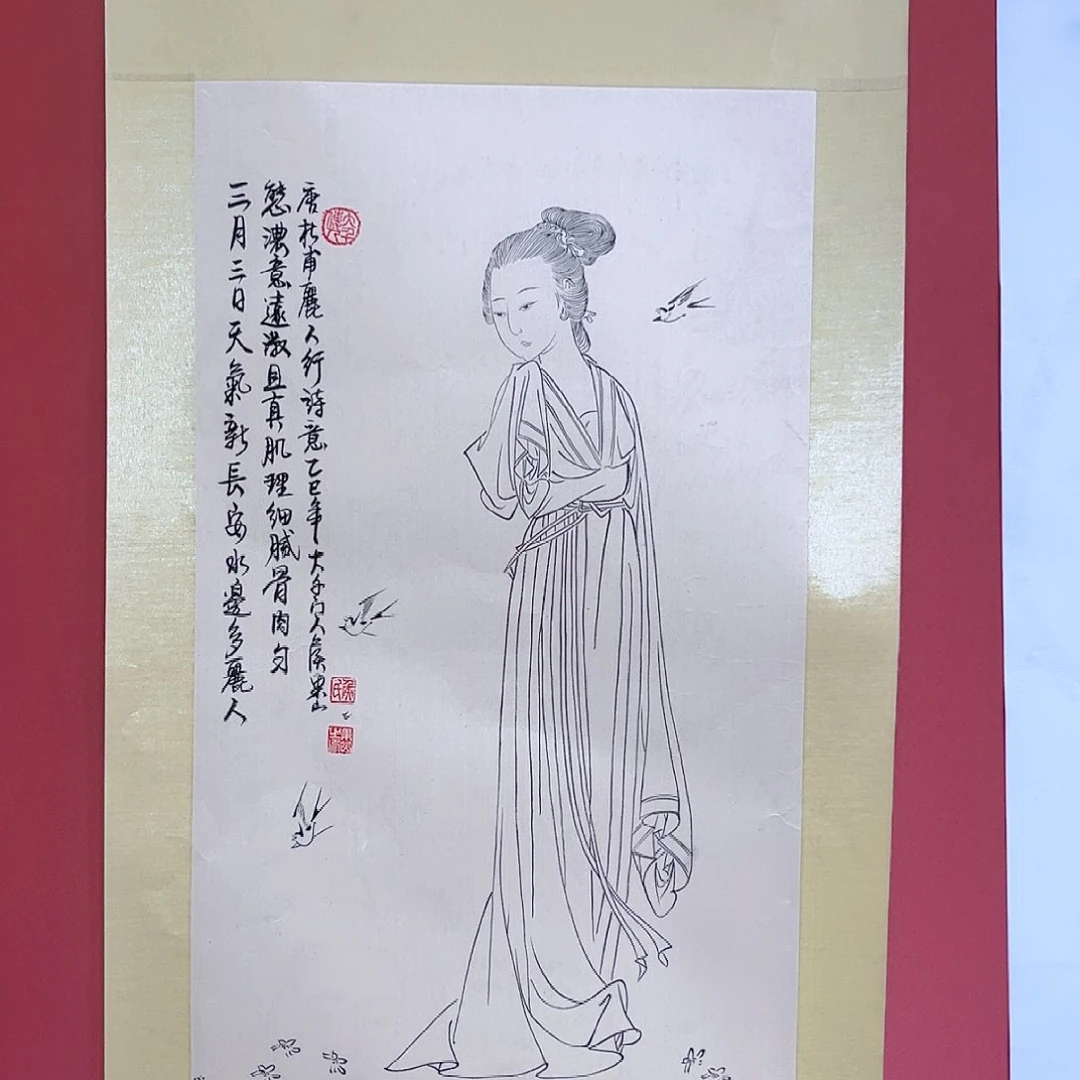 三月三日天氣新長安水邊多麗人
態濃意遠淑且真肌理細膩骨肉匀
唐杜甫麗人行詩意乙巳年大千门人侯